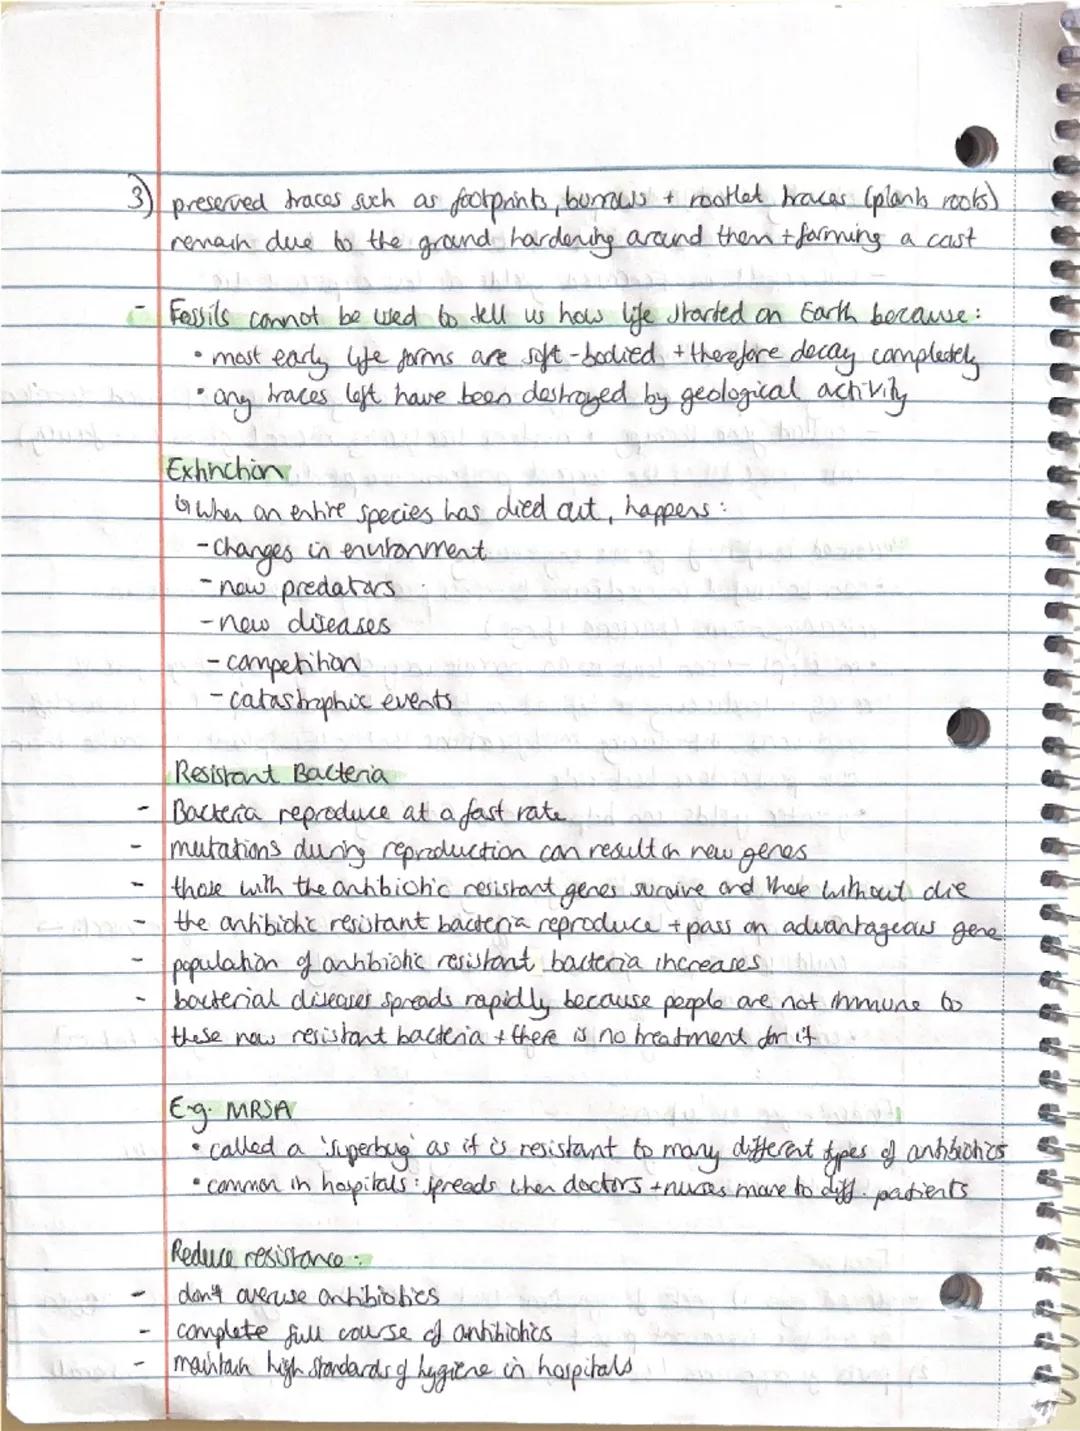 3) preserved traces such as footprints, burrows + rootlet traces (plants roots)
remain due to the ground hardening around them + forming a cast
- Fossils cannot be used to tell us how life started on Earth because:
• most early life forms are soft-bodied + therefore decay completely
• any traces left have been destroyed by geological activity
Extinction
↳ When an entire species has died out, happens:
- Changes in environment
- new predators
- new diseases
- competition
- catastrophic events
Resistant Bacteria
- Bacteria reproduce at a fast rate
- mutations during reproduction can result in new genes
- those with the antibiotic resistant genes survive and those without die
- the antibiotic resistant bacteria reproduce + pass on advantageous gene
- population of antibiotic resistant bacteria increases
- bacterial diseases spreads rapidly because people are not immune to
these new resistant bacteria + there is no treatment for it
E.g. MRSA
• called a 'superbug' as it is resistant to many different types of antibiotics
• common in hospitals: spreads when doctors + nurses move to diff. patients
Reduce resistance:
- don't overuse antibiotics
- complete full course of antibiotics
- maintain high standards of hygiene in hospitals